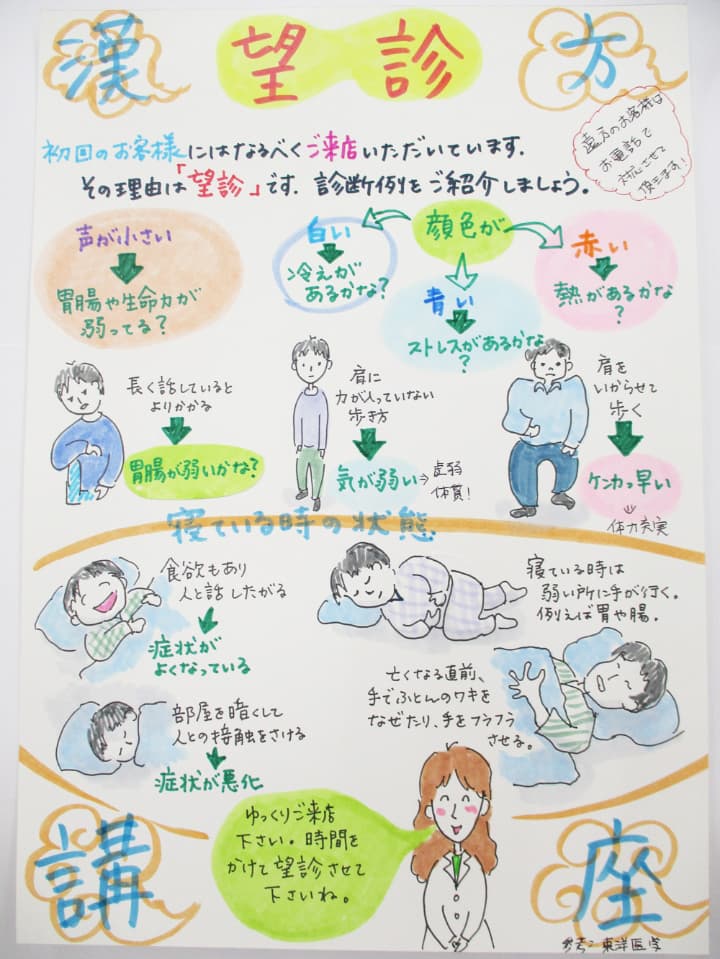 漢
望診
方
遠方のお客様は
お電話で
対応させて
頂きます!
初回のお客様にはなるべくご来店いただいています.
その理由は「望診」です.診断例をご紹介しましょう。
声が小さい
胃腸や生命力が
弱ってる?
白い
冷えが
あるかな?
顔色が
青い
ストレスがあるかな
?
赤い
熱があるかな
?
長く話していると
よりかかる
胃腸が弱いかな?
肩に
力が入っていない
歩き方
気が弱い⇒虚弱
体質!
肩を
いからせて
歩く
ケンカっ早い
⇓
体力充実
寝ている時の状態
食欲もあり
人と話したがる
症状が
よくなっている
寝ている時は
弱い所に手が行く。
例えば胃や腸.
部屋を暗くして
人との接触をさける
症状が悪化
亡くなる直前、
手でふとんのワキを
なぜたり、手をフラフラ
させる。
ゆっくりご来店
下さい.時間を
かけて望診させて
下さいね。
講
座
参考:東洋医学